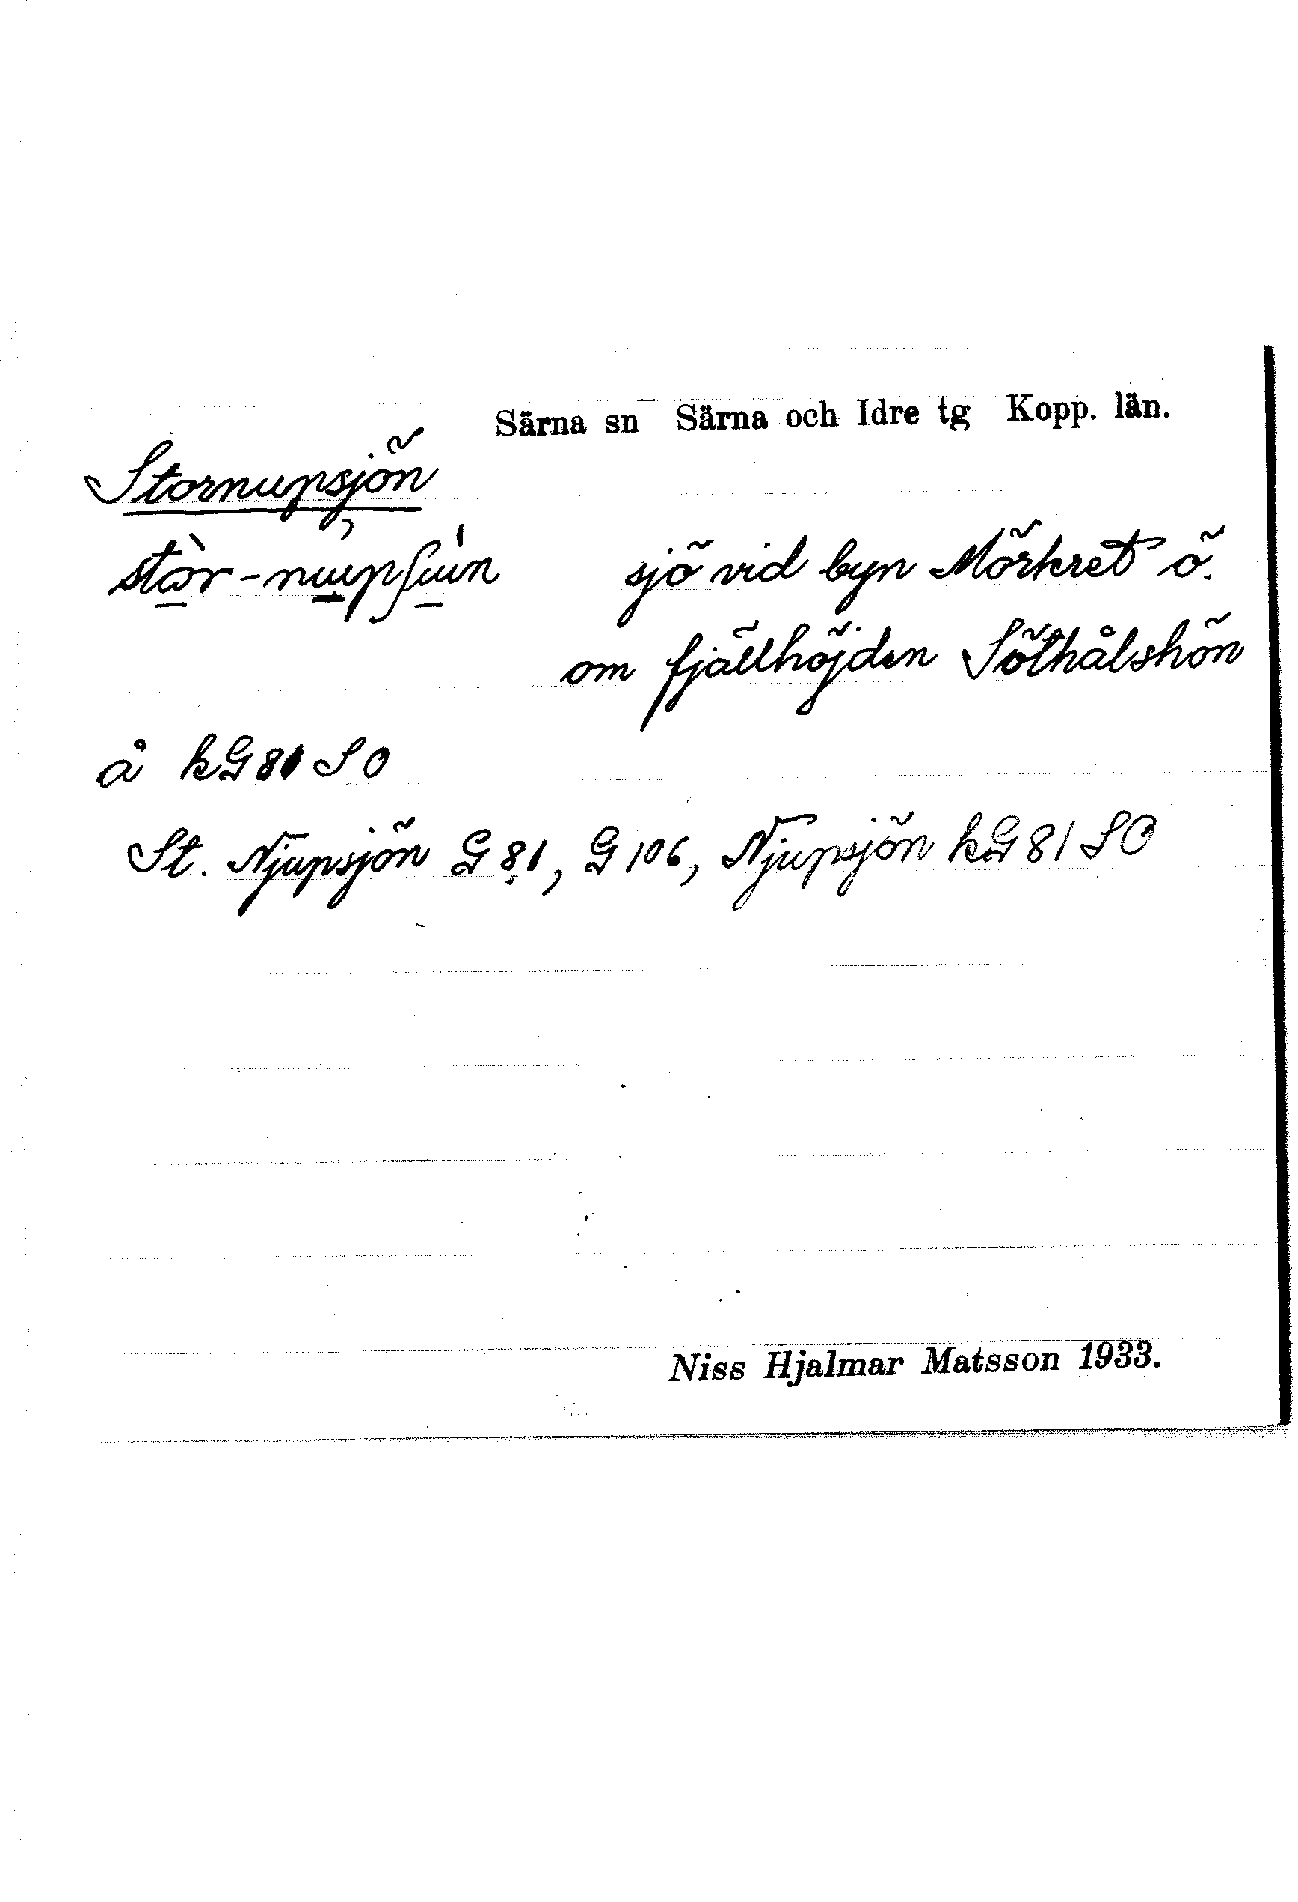 Särna sn Särna och Idre tg Kopp. län.
Stornupsjön
sjö vid byn Mörkret ö.
om fjällhöjden Sölhålshön
å kG 81 SO
St. Njupsjön G 81, G 106, Njupsjön kG 81 SO
Niss Hjalmar Matsson 1933.